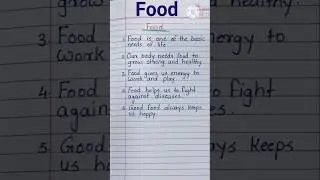 Food
Food
1. Food is one of the basic
needs of life.
2. Our body needs food to
grow strong and healthy.
3. Food gives us energy to
work and play.
4. Food helps us to fight
against diseases.
5. Good food always keeps
us happy.
3. Food
energy to
work
4. Food
to fight
again
5. Good
keeps
us ha